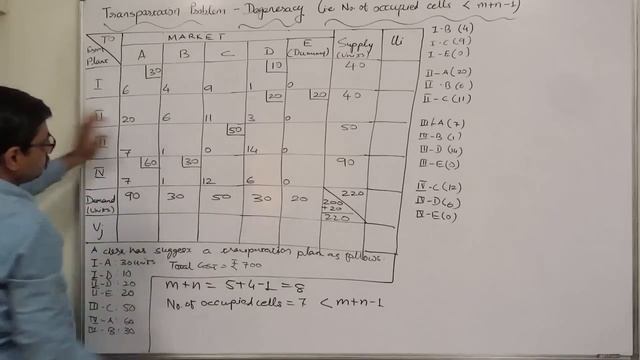 Transportation Problem - Degeneracy (ie No. of occupied cells < m+n-1)
To
From
Plant
MARKET
A B C D E (Dummy)
Supply (Units)
Ui
I 30 10 40
6 4 9 1 0
II 20 20 40
20 6 11 3 0
50 50
7 1 0 14 0
IV 60 30 90
7 1 12 6 0
Demand (Units) 90 30 50 30 20 220
200
+20
220
Vj
A clerk has suggest a transportation plan as follows
I-A: 30 units Total Cost = ₹ 700
I-D: 10
II-D: 20
II-E: 20
III-C: 50
IV-A: 60
IV-B: 30
m+n = 5+4-1 = 8
No. of occupied cells = 7 < m+n-1
I-B (4)
I-C (9)
I-E (0)
II-A (20)
II-B (6)
II-C (11)
III-A (7)
III-B (1)
III-D (14)
III-E (0)
IV-C (12)
IV-D (6)
IV-E (0)